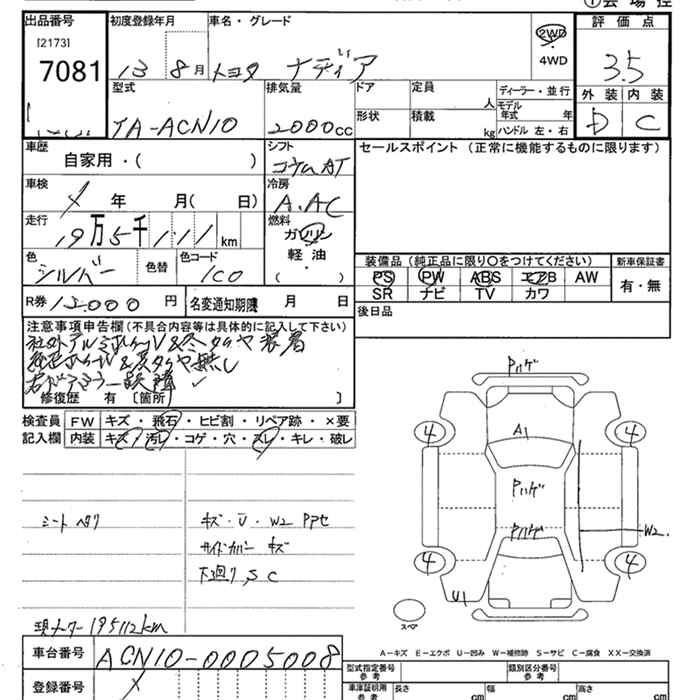 出品番号 初度登録年月 車名・グレード 評価点
[2173]
7081
13 8月 トヨタ ナディア 2WD・4WD 3.5
型式 排気量 ドア 定員 人 ディーラー・並行 外装 内装
JA-ACN10 2000cc 形状 積載 kg モデル年式 年 ハンドル 左・右 D C
車歴 シフト セールスポイント (正常に機能するものに限ります)
自家用・( ) コラムAT
車検 冷房
X 年 月( 日) A.AC
走行 燃料
19万5千111km ガソリン
軽油
( )
色 色替 色コード
シルバー 1C0
装備品 (純正品に限り○をつけてください) 新車保証書
PS PW ABS エアB AW 有・無
SR ナビ TV カワ
R券 円 名変通知期限 月 日
後日品
注意事項申告欄 (不具合内容等は具体的に記入して下さい)
修復歴 有 [箇所 ]
検査員 FW キズ・飛石・ヒビ割・リペア跡・×要
記入欄 内装 キズ・汚レ・コゲ・穴・スレ・キレ・破レ
Pハゲ
4 4
A1
Pハゲ
Pハゲ
W2
4 4
U1
スペア
シートヘタリ
キズ・U・W2 PPセ
サイドカバー キズ
下廻り,SC
現メーター 195112km
A-キズ E-エクボ U-凹み W-補修跡 S-サビ C-腐食 XX-交換済
車台番号 ACN10-0005008
型式指定番号 類別区分番号
登録番号 X
車庫証明用 参考 長さ cm 幅 cm 高さ cm